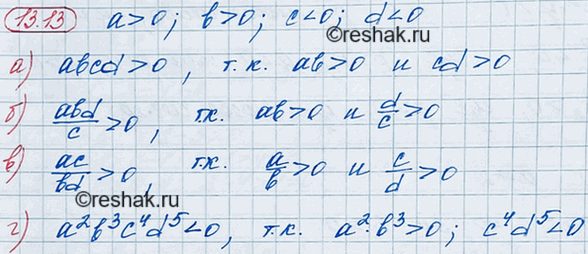 13.13 a>0; b>0; c<0; d<0
©reshak.ru
а) abcd>0, т.к. ab>0 и cd>0
б) abd/c>0, т.к. ab>0 и d/c>0
в) ac/bd>0, т.к. a/b>0 и c/d>0
©reshak.ru
г) a²b³c⁴d⁵<0, т.к. a²·b³>0; c⁴d⁵<0